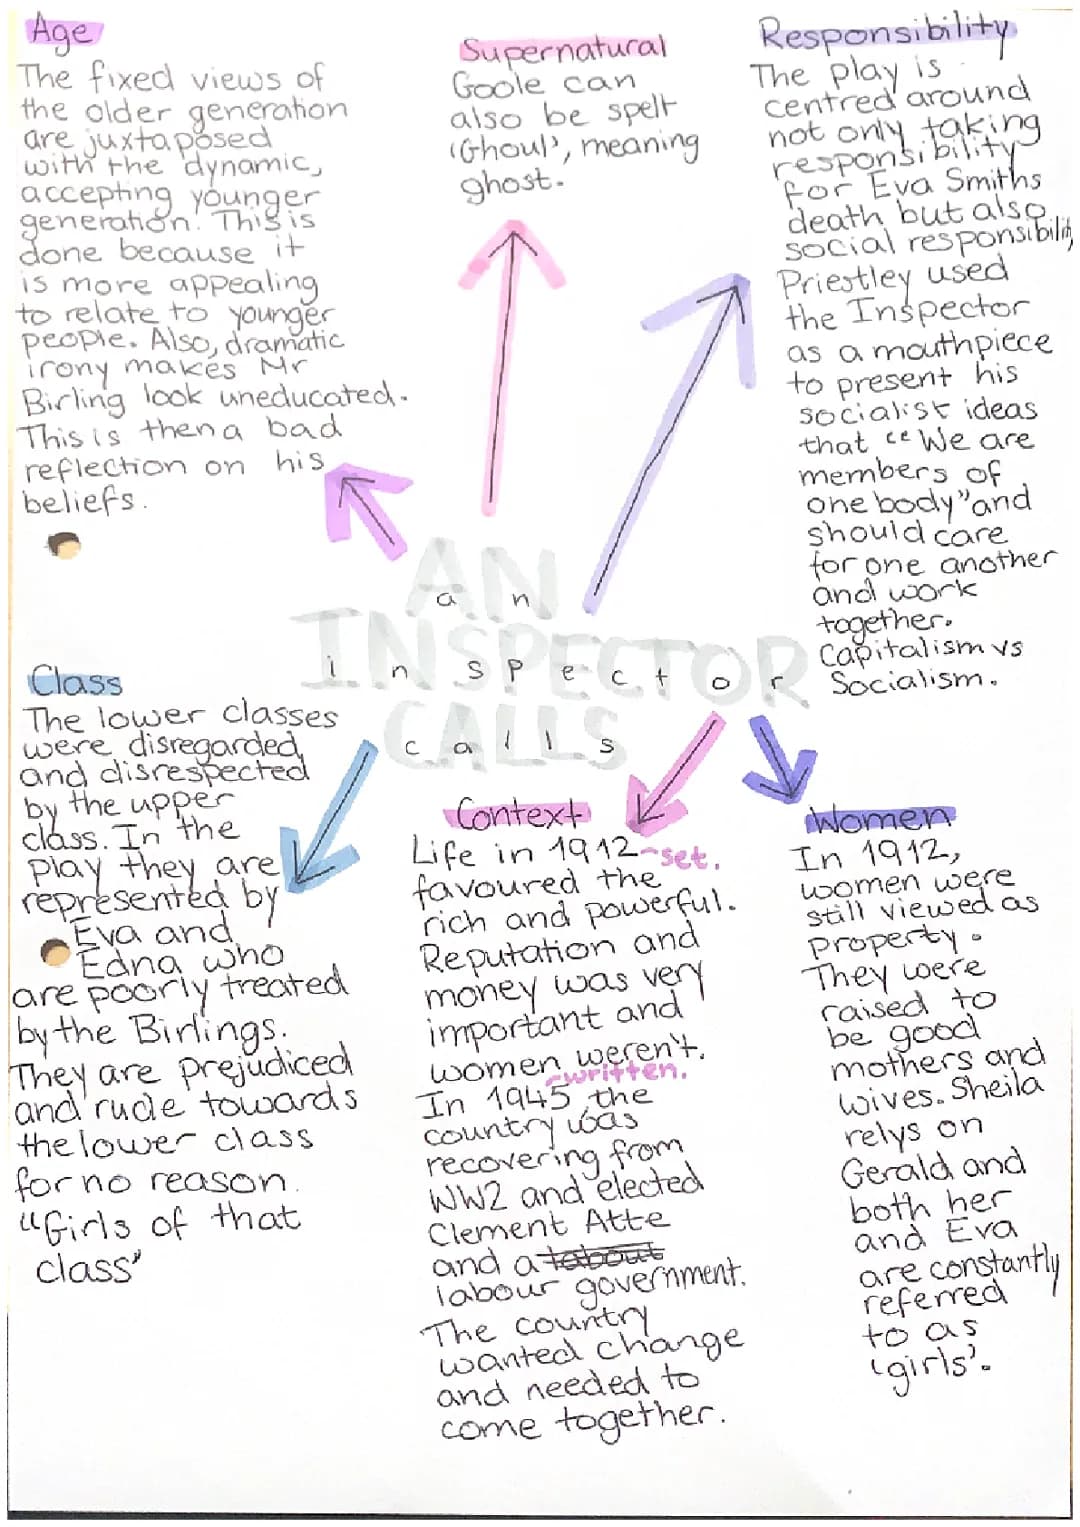 Age
The fixed views of
the older generation
are juxtaposed
with the dynamic,
accepting younger
generation. This is
done because it
is more appealing
to relate to younger
people. Also, dramatic
irony makes Mr
Birling look uneducated.
This is then a bad
reflection on his
beliefs.
Supernatural
Goole can
also be spelt
'Ghoul', meaning
ghost.
Responsibility
The play is
centred around
not only taking
responsibility
for Eva Smiths
death but also
social responsibility
Priestley used
the Inspector
as a mouthpiece
to present his
socialist ideas
that "We are
members of
one body" and
should care
for one another
and work
together.
Capitalism vs
Socialism.
AN
an
INSPECTOR
inspector
CALLS
calls
Class
The lower classes
were disregarded
and disrespected
by the upper
class. In the
play they are
represented by
Eva and
Edna who
are poorly treated
by the Birlings.
They are prejudiced
and rude towards
the lower class
for no reason.
"Girls of that
class"
Context
Life in 1912 -set.
favoured the
rich and powerful.
Reputation and
money was very
important and
women weren't.
-written.
In 1945, the
country was
recovering from
WW2 and elected
Clement Atte
and a tabout
labour government.
The country
wanted change
and needed to
come together.
Women
In 1912,
women were
still viewed as
property.
They were
raised to
be good
mothers and
wives. Sheila
relys on
Gerald and
both her
and Eva
are constantly
referred
to as
'girls'.